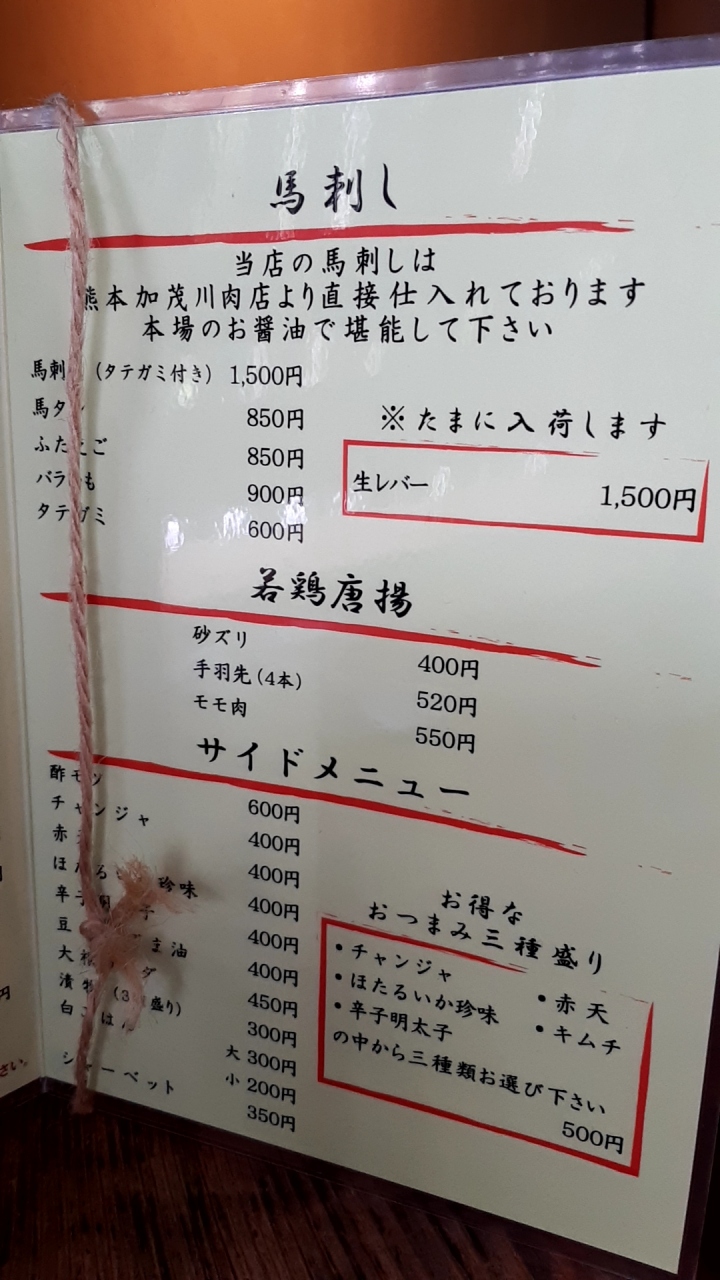 馬刺し
当店の馬刺しは
熊本加茂川肉店より直接仕入れております
本場のお醤油で堪能して下さい
馬刺 (タテガミ付き) 1,500円
馬タン 850円
ふたえご 850円
バラ も 900円
タテガミ 600円
※たまに入荷します
生レバー 1,500円
若鶏唐揚
砂ズリ 400円
手羽先(4本) 520円
モモ肉 550円
サイドメニュー
酢モツ 600円
チャンジャ 400円
赤 400円
ほたるい 珍味 400円
辛子明 子 400円
豆 ま油 400円
大根 ダ 450円
漬物(3種盛り) 300円
白ごはん 大 300円
小 200円
シャーベット 350円
お得な
おつまみ三種盛り
・チャンジャ ・赤天
・ほたるいか珍味 ・キムチ
・辛子明太子
の中から三種類お選び下さい
500円
円
さい。